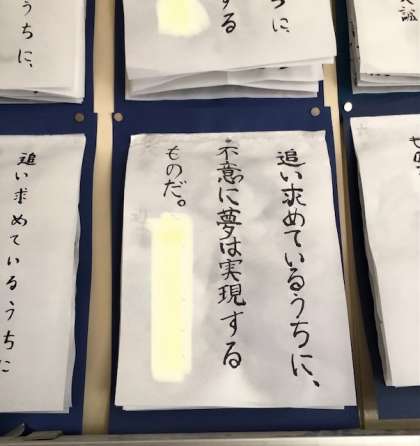 追い求めているうちに、
不意に夢は実現する
ものだ。
追い求めているうちに
うちに、
に、
する